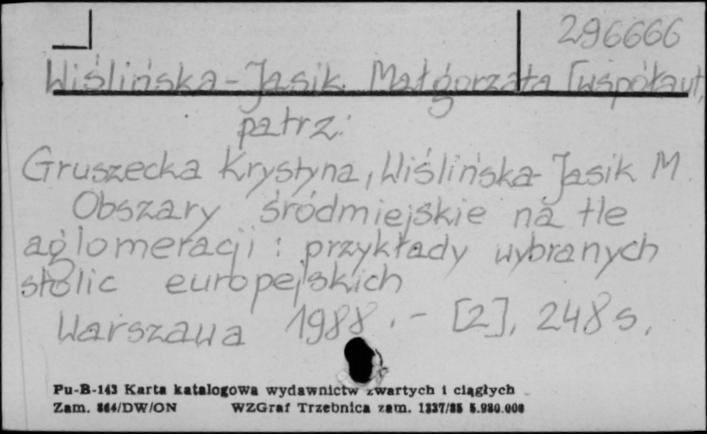 296666
Wiślińska-Jasik Małgorzata [współaut,
patrz:
Gruszecka Krystyna, Wiślińska-Jasik M
Obszary śródmiejskie na tle
aglomeracji : przykłady wybranych
stolic europejskich
Warszawa 1988. - [2], 248 s.
Pu-B-143 Karta katalogowa wydawnictw zwartych i ciągłych
Zam. 864/DW/ON WZGraf Trzebnica zam. 1337/85 5.980.000